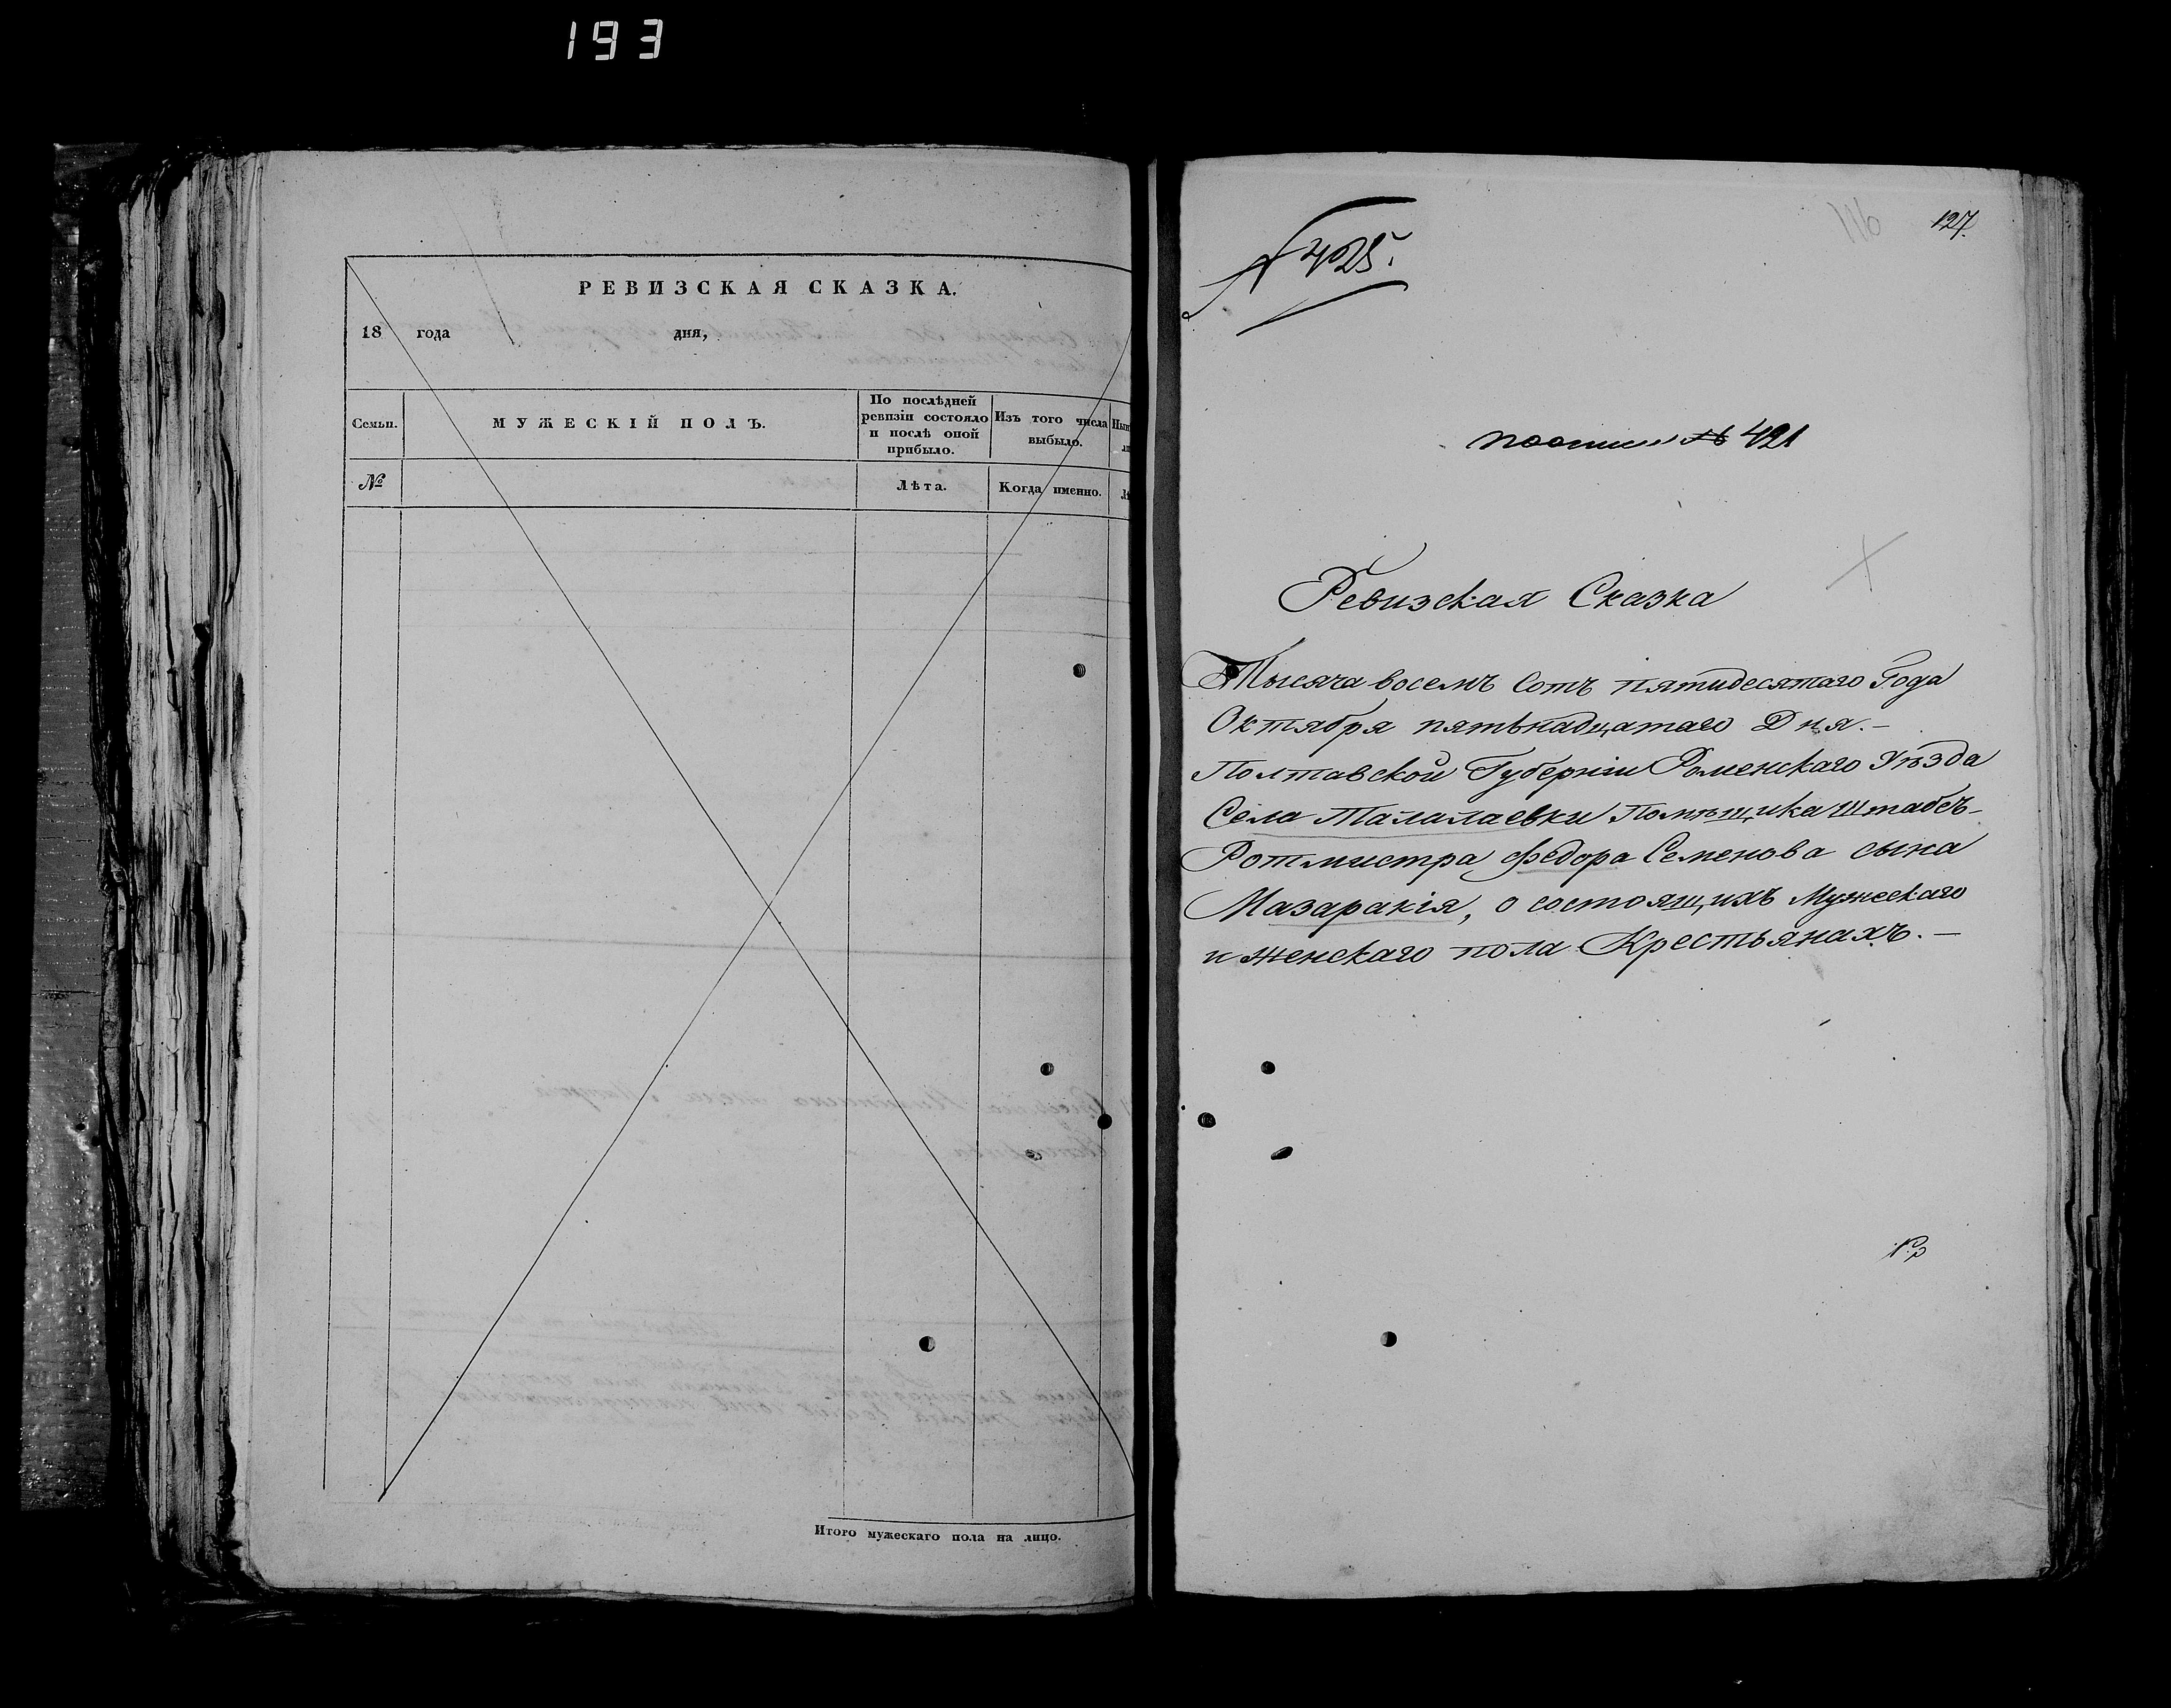 193
РЕВИЗСКАЯ СКАЗКА.
18 года дня,
Семьи.
МУЖЕСКІЙ ПОЛЪ.
По послѣдней ревизіи состояло и послѣ оной прибыло.
Изъ того числа выбыло.
№
Лѣта.
Когда именно.
Итого мужескаго пола на лицо.
116
127.
№ 425.
№ 421
Ревизская Сказка
Тысяча восемъ Сотъ пятидесятаго Года
Октября пятьнадцатаго Дня.-
Полтавской Губерніи Роменскаго Уѣзда
Села Талалаевки Помѣщика Штабсъ-
Ротмистра Федора Семенова сына
Мазаракія, о состоящихъ Мужескаго
и Женскаго пола Крестьянахъ.-